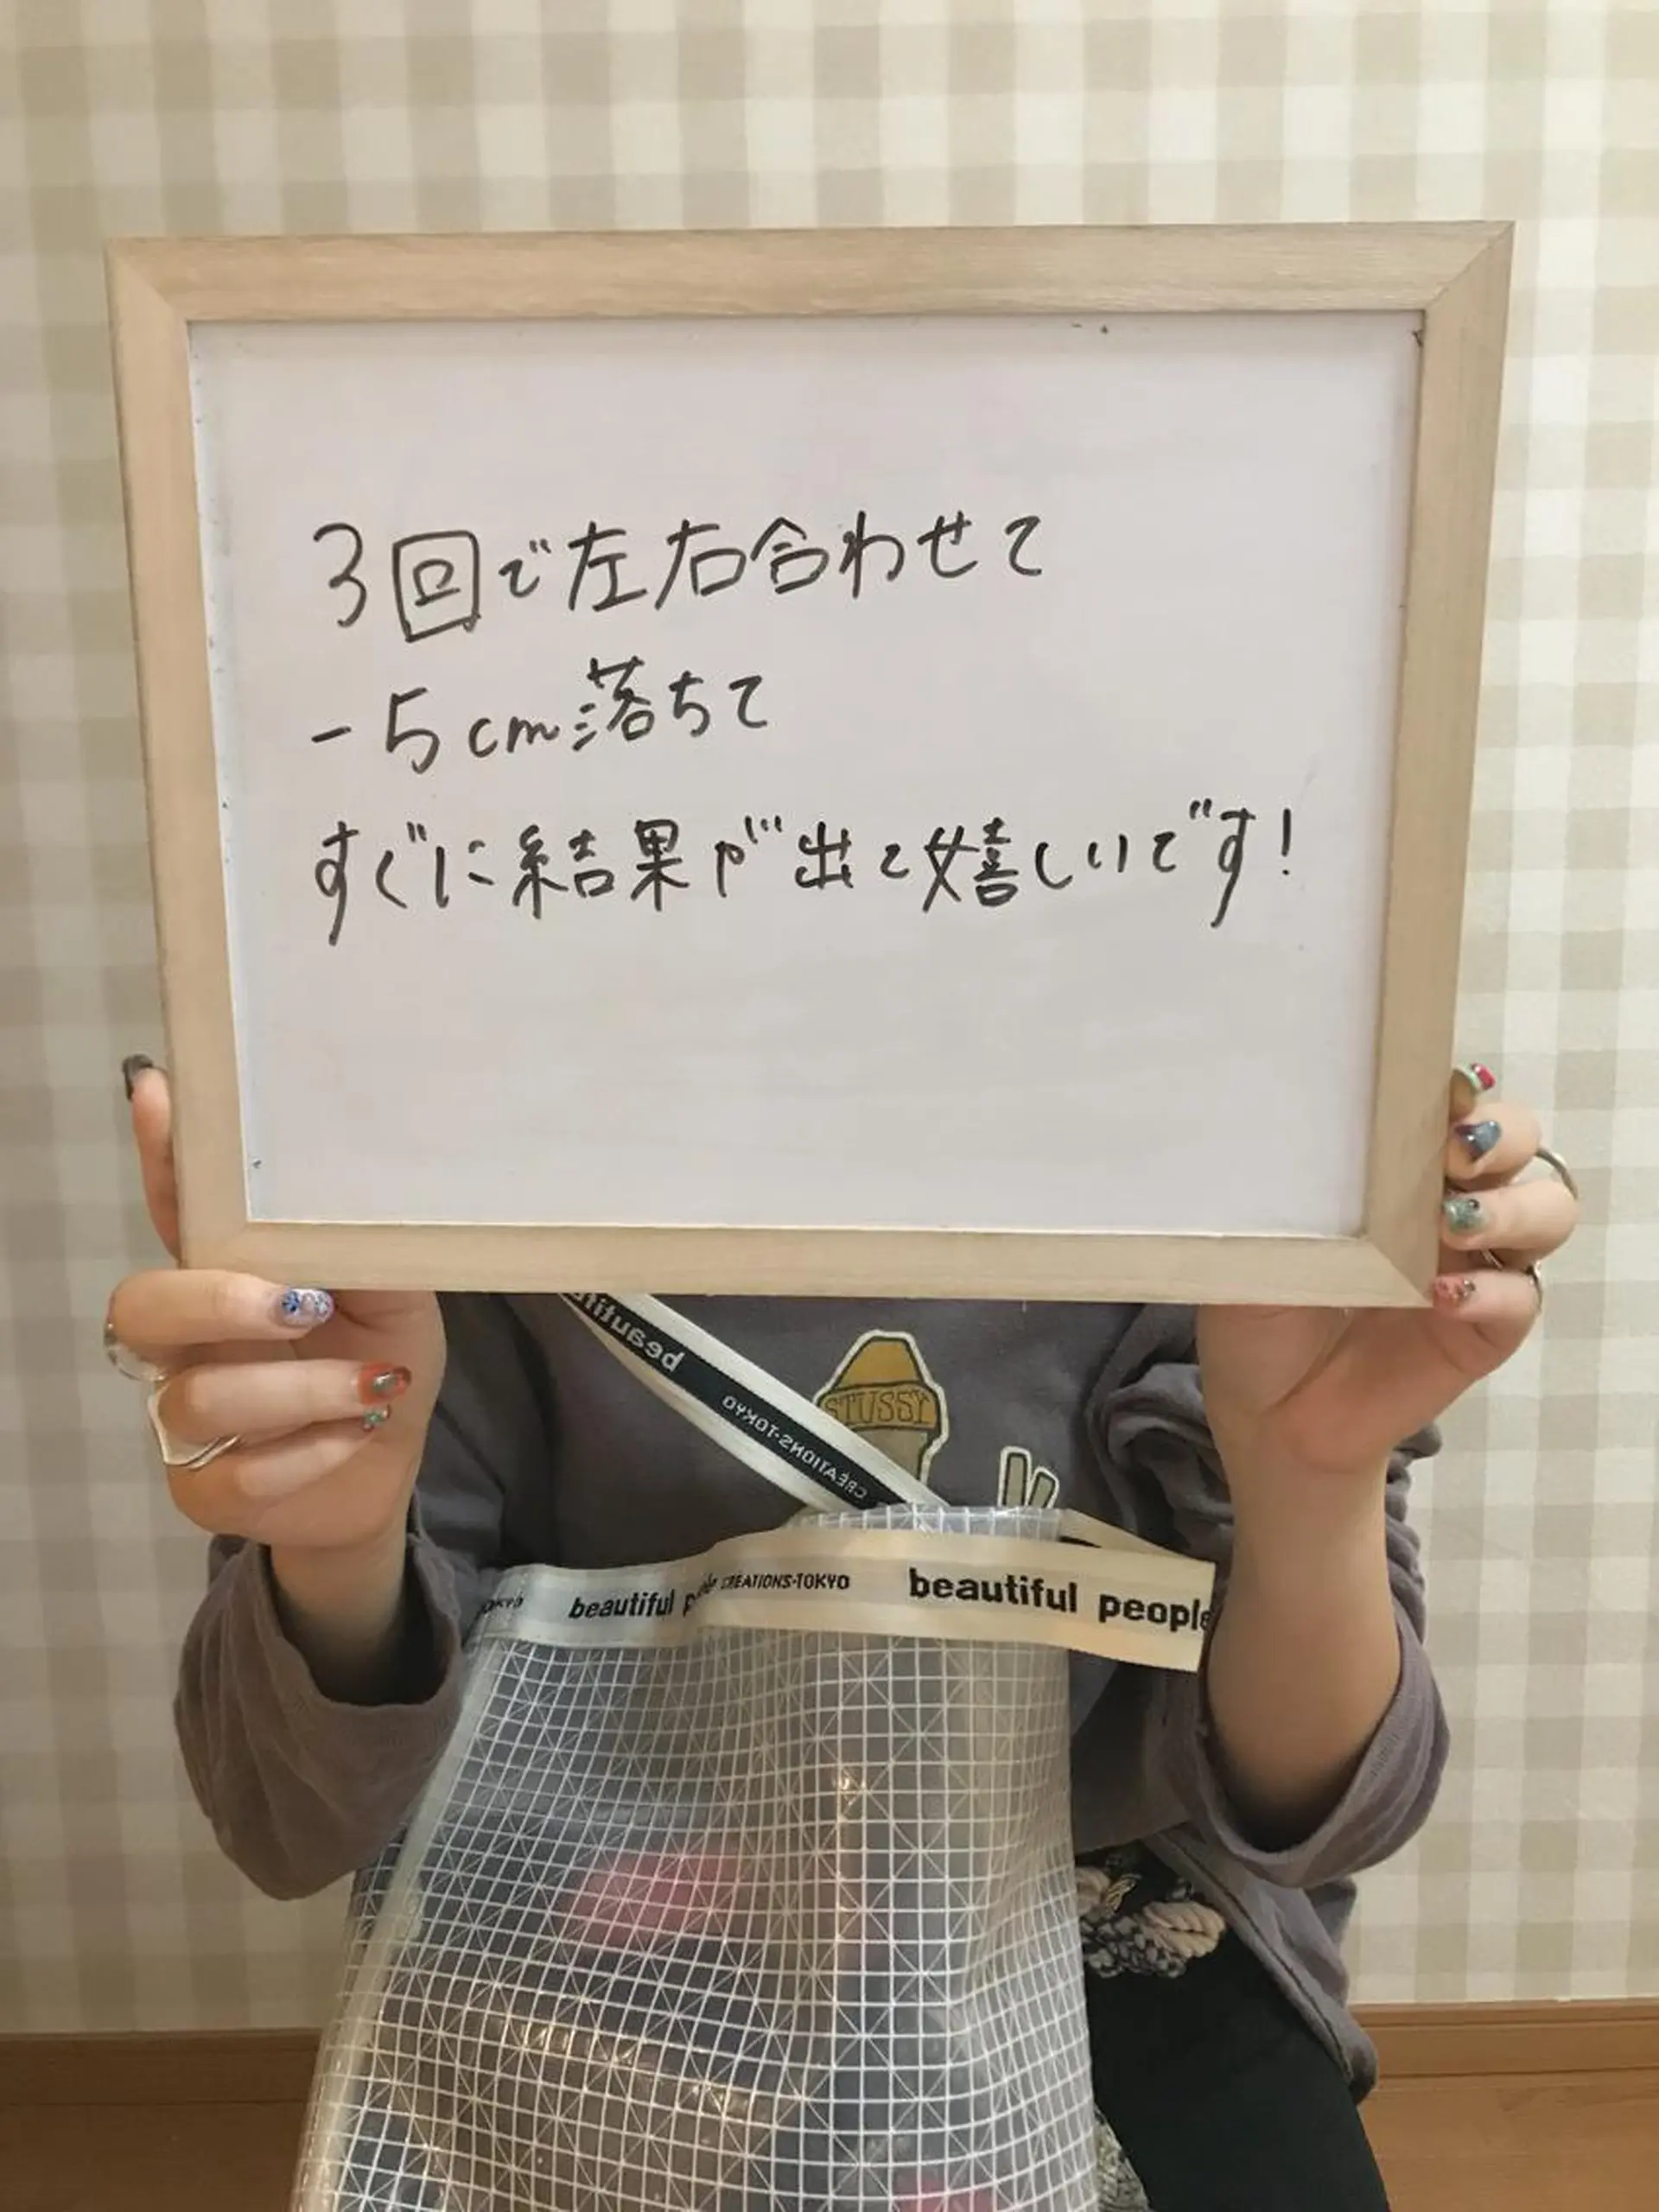 3回で左右合わせて
-5cm落ちて
すぐに結果が出て嬉しいです!
beautiful
CREATIONS-TOKYO
STUSSY
beautiful
CREATIONS-TOKYO
beautiful people